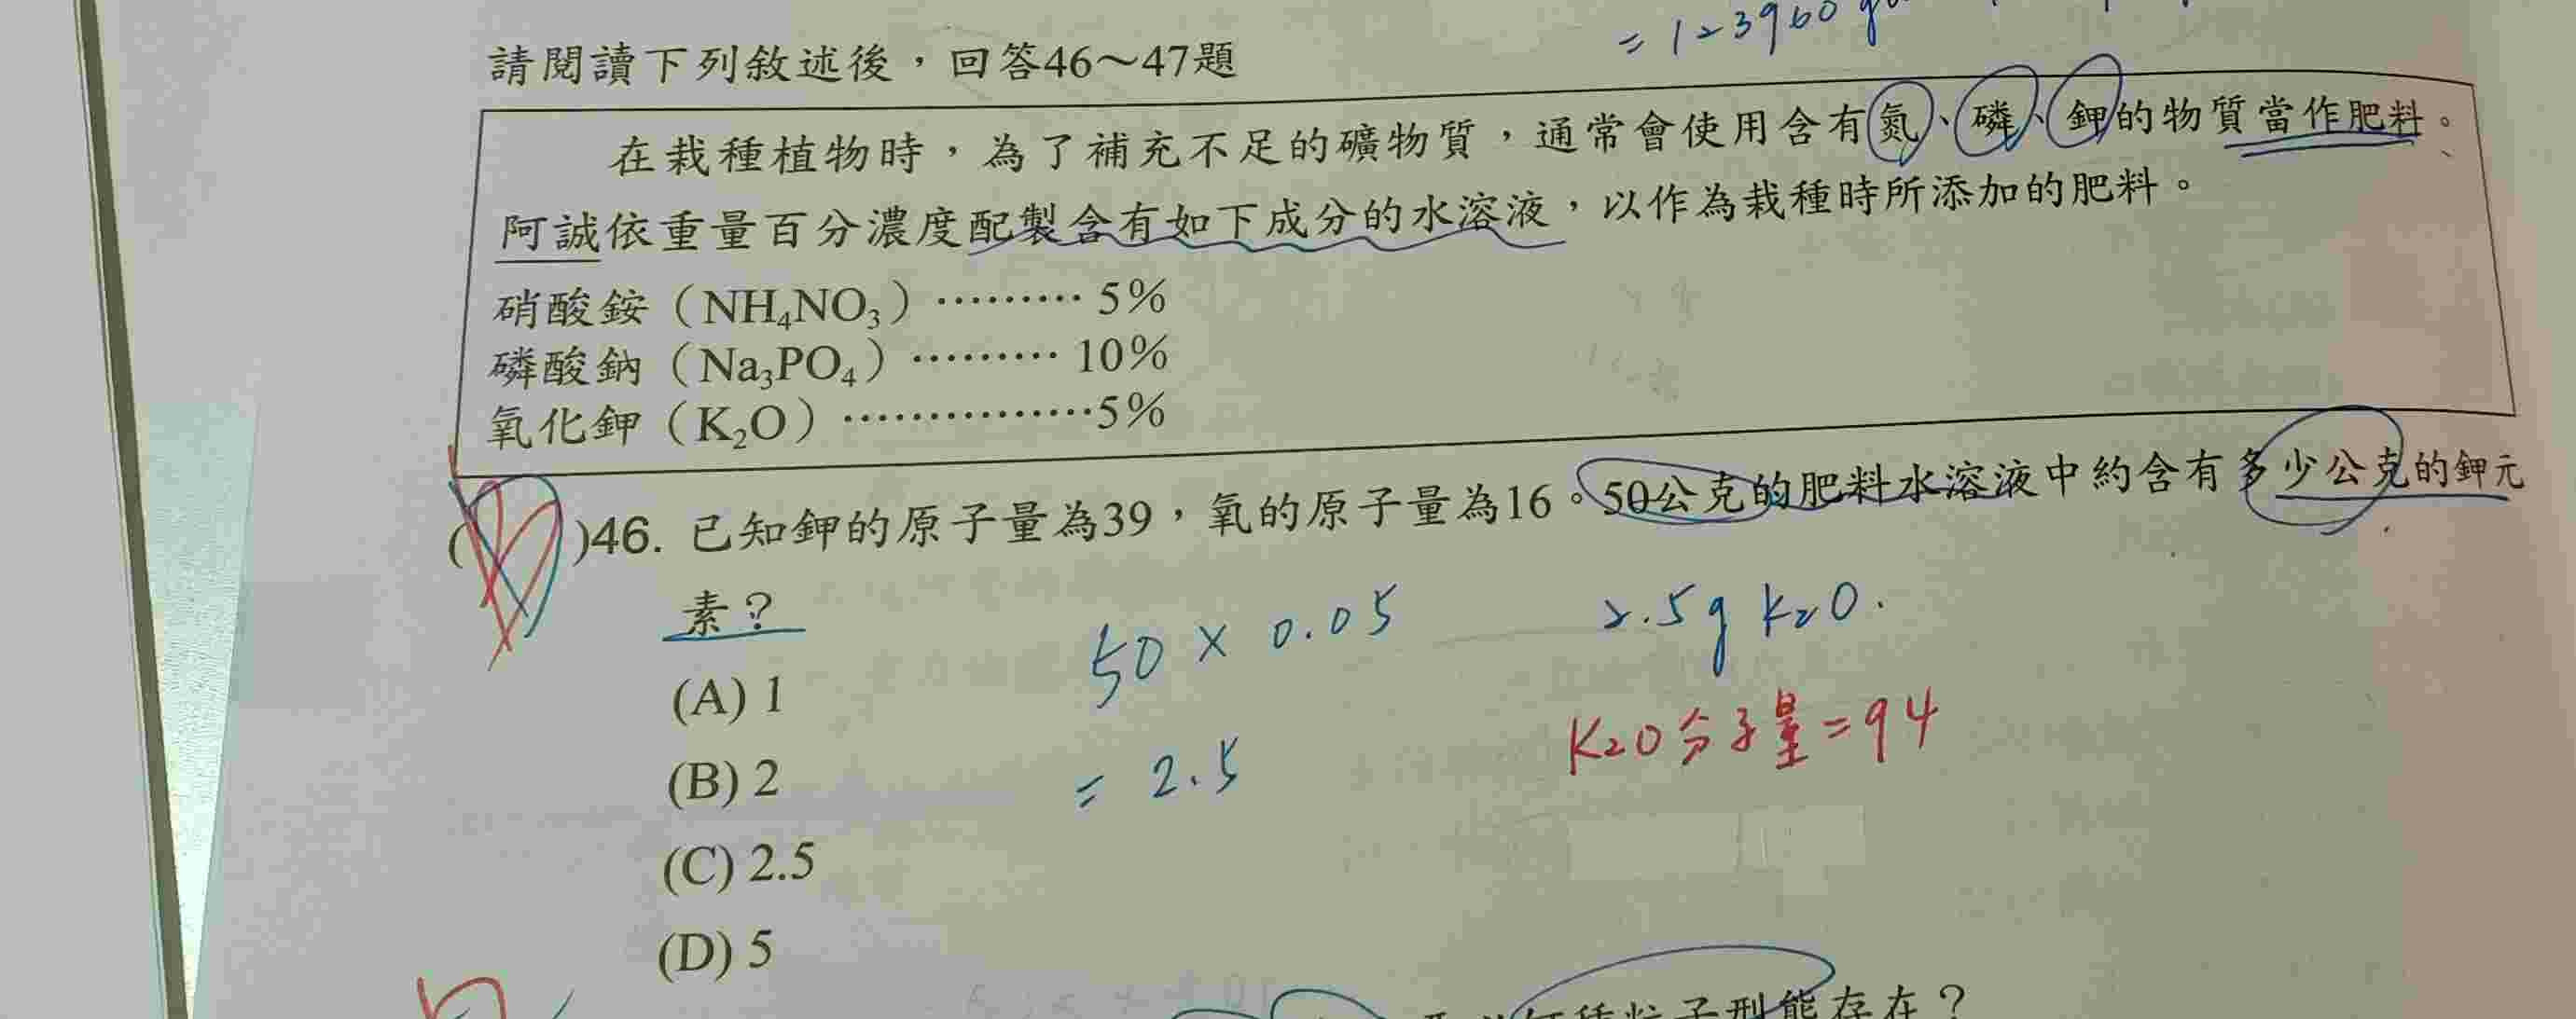 = 123960
請閱讀下列敘述後，回答46～47題
在栽種植物時，為了補充不足的礦物質，通常會使用含有氮、磷、鉀的物質當作肥料。
阿誠依重量百分濃度配製含有如下成分的水溶液，以作為栽種時所添加的肥料。
硝酸銨（NH₄NO₃）⋯⋯⋯ 5%
磷酸鈉（Na₃PO₄）⋯⋯⋯ 10%
氧化鉀（K₂O）⋯⋯⋯⋯⋯5%
( )46. 已知鉀的原子量為39，氧的原子量為16。50公克的肥料水溶液中約含有多少公克的鉀元
素？
50 × 0.05
2.5g K₂O.
(A) 1
K₂O分子量=94
(B) 2
= 2.5
(C) 2.5
(D) 5
種粒子型態存在？